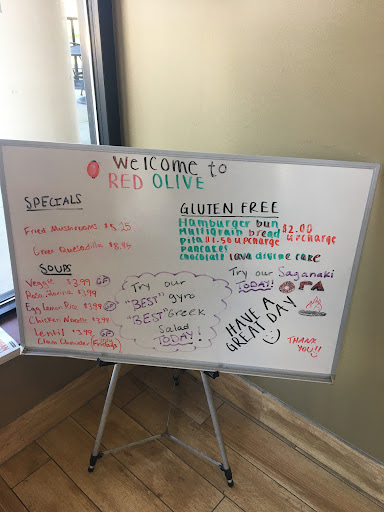 Welcome to
RED OLIVE
SPECIALS
Fried Mushrooms $5.25
Greek Quesadilla $8.95
SOUPS
Veggie $3.99 GF
Pasta $3.99
Egg Lemon Rice $3.99
Chicken Noodle $3.99
Lentil $3.99 GF
Clam Chowder (Fridays)
Try our
"BEST" gyro
"BEST" Greek
Salad
TODAY!
GLUTEN FREE
Hamburger bun
Multigrain bread $2.00 upcharge
Pita $1.50 upcharge
Pancakes
Chocolate lava divine cake
Try our Saganaki
TODAY! OPA
HAVE A
GREAT DAY
THANK
YOU!!